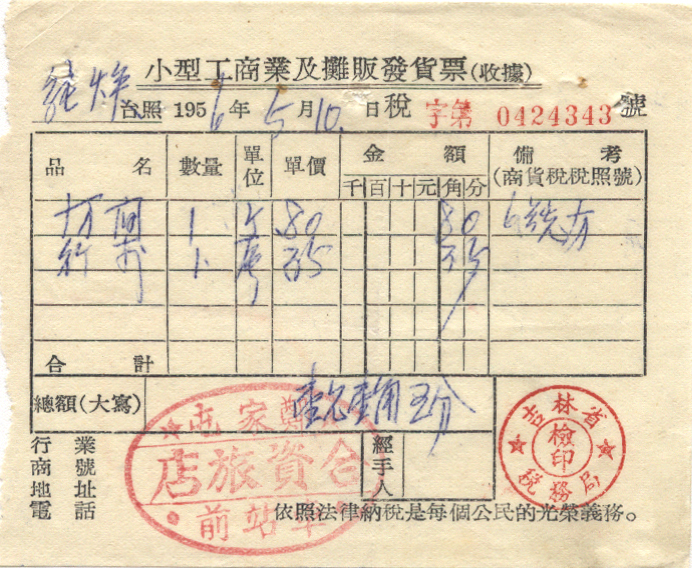 小型工商業及攤販發貨票(收據)
台照 1956年5月10日 稅字第 0424343 號
品名 數量 單位 單價 金額 備考
千 百 十 元 角 分 (商貨稅稅照號)
房間 1 .80 80
1 35 35
合計
總額(大寫) 壹元壹角五分
鄭家屯
合資旅店
車站前
吉林省
稅務局
檢印
行業
商號
地址
電話
經手人
依照法律納稅是每個公民的光榮義務。